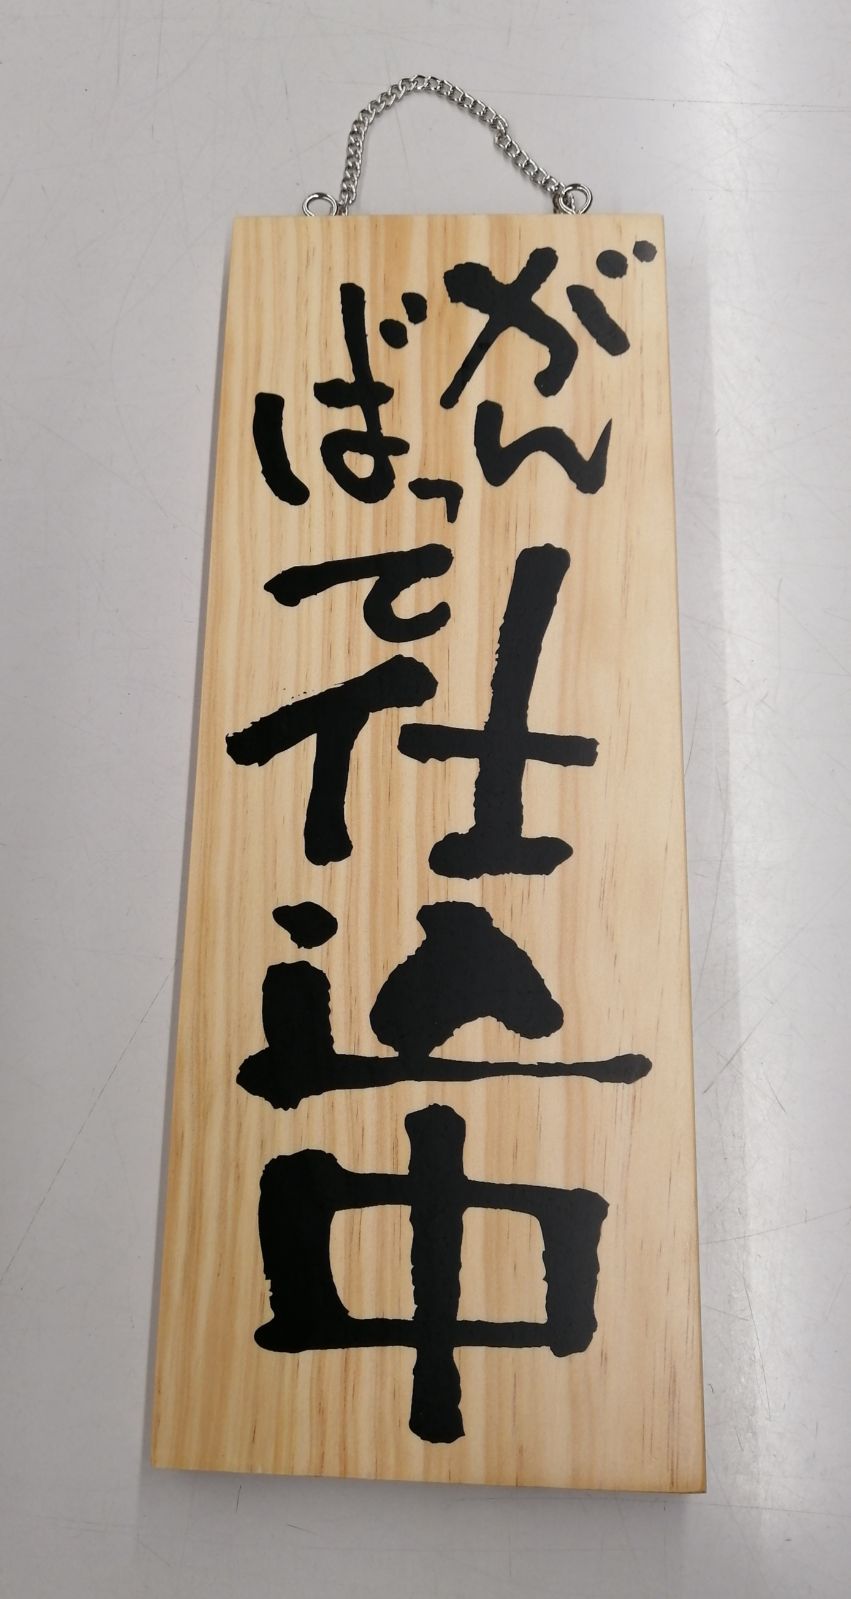 がんばって
仕込中